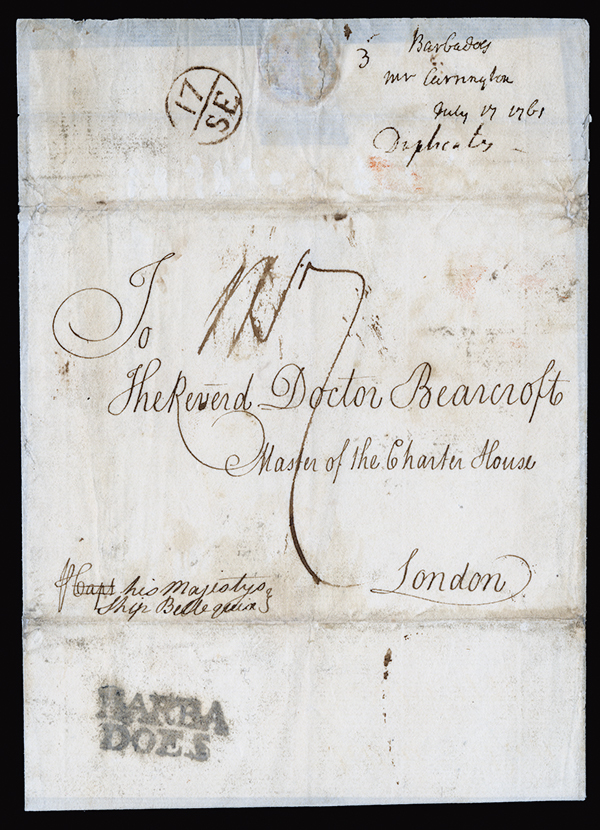 17
SE
3
Barbadoes
Mr Carrington
July 17 1761
Duplicates
To
The Reverd Doctor Bearcroft
Master of the Charter House
London
Capt his Majestys
Ship
BARBA
DOES